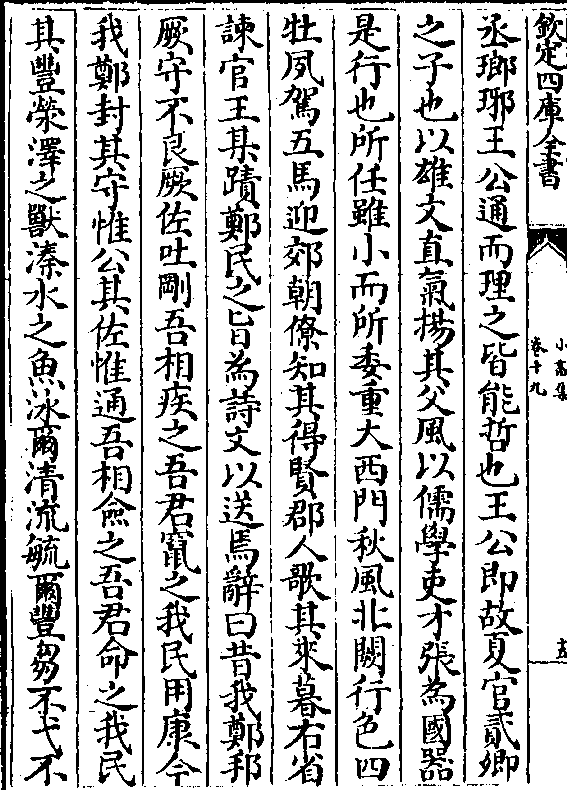 欽定四庫全書
小畜集
卷十九
丞瑯琊王公通而理之皆能哲也王公即故夏官貳卿
之子也以雄文直氣揚其父風以儒學吏才張為國器
是行也所任雖小而所委重大西門秋風北闕行色四
牡夙駕五馬迎郊朝僚知其得賢郡人歌其來暮右省
諫官王某蹟鄭民之旨為詩文以送焉辭曰昔我鄭邦
厥守不良厥佐吐剛吾相疾之吾君竄之我民用康今
我鄭封其守惟公其佐惟通吾相僉之吾君命之我民
其豐滎澤之獸溱水之魚冰爾清流毓爾豐芻不弋不